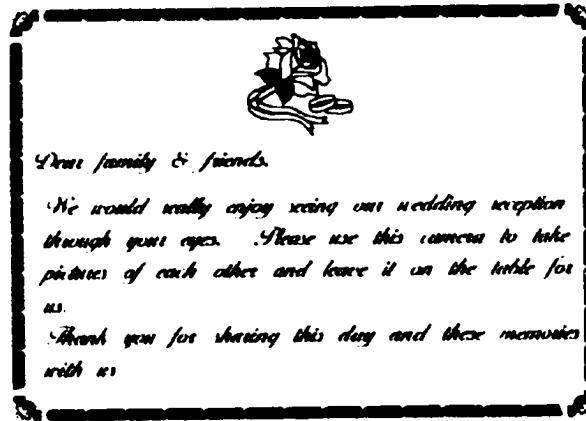 Dear family & friends.
We would really enjoy seeing our wedding reception
through your eyes. Please use this camera to take
pictures of each other and leave it on the table for
us.
Thank you for sharing this day and these memories
with us